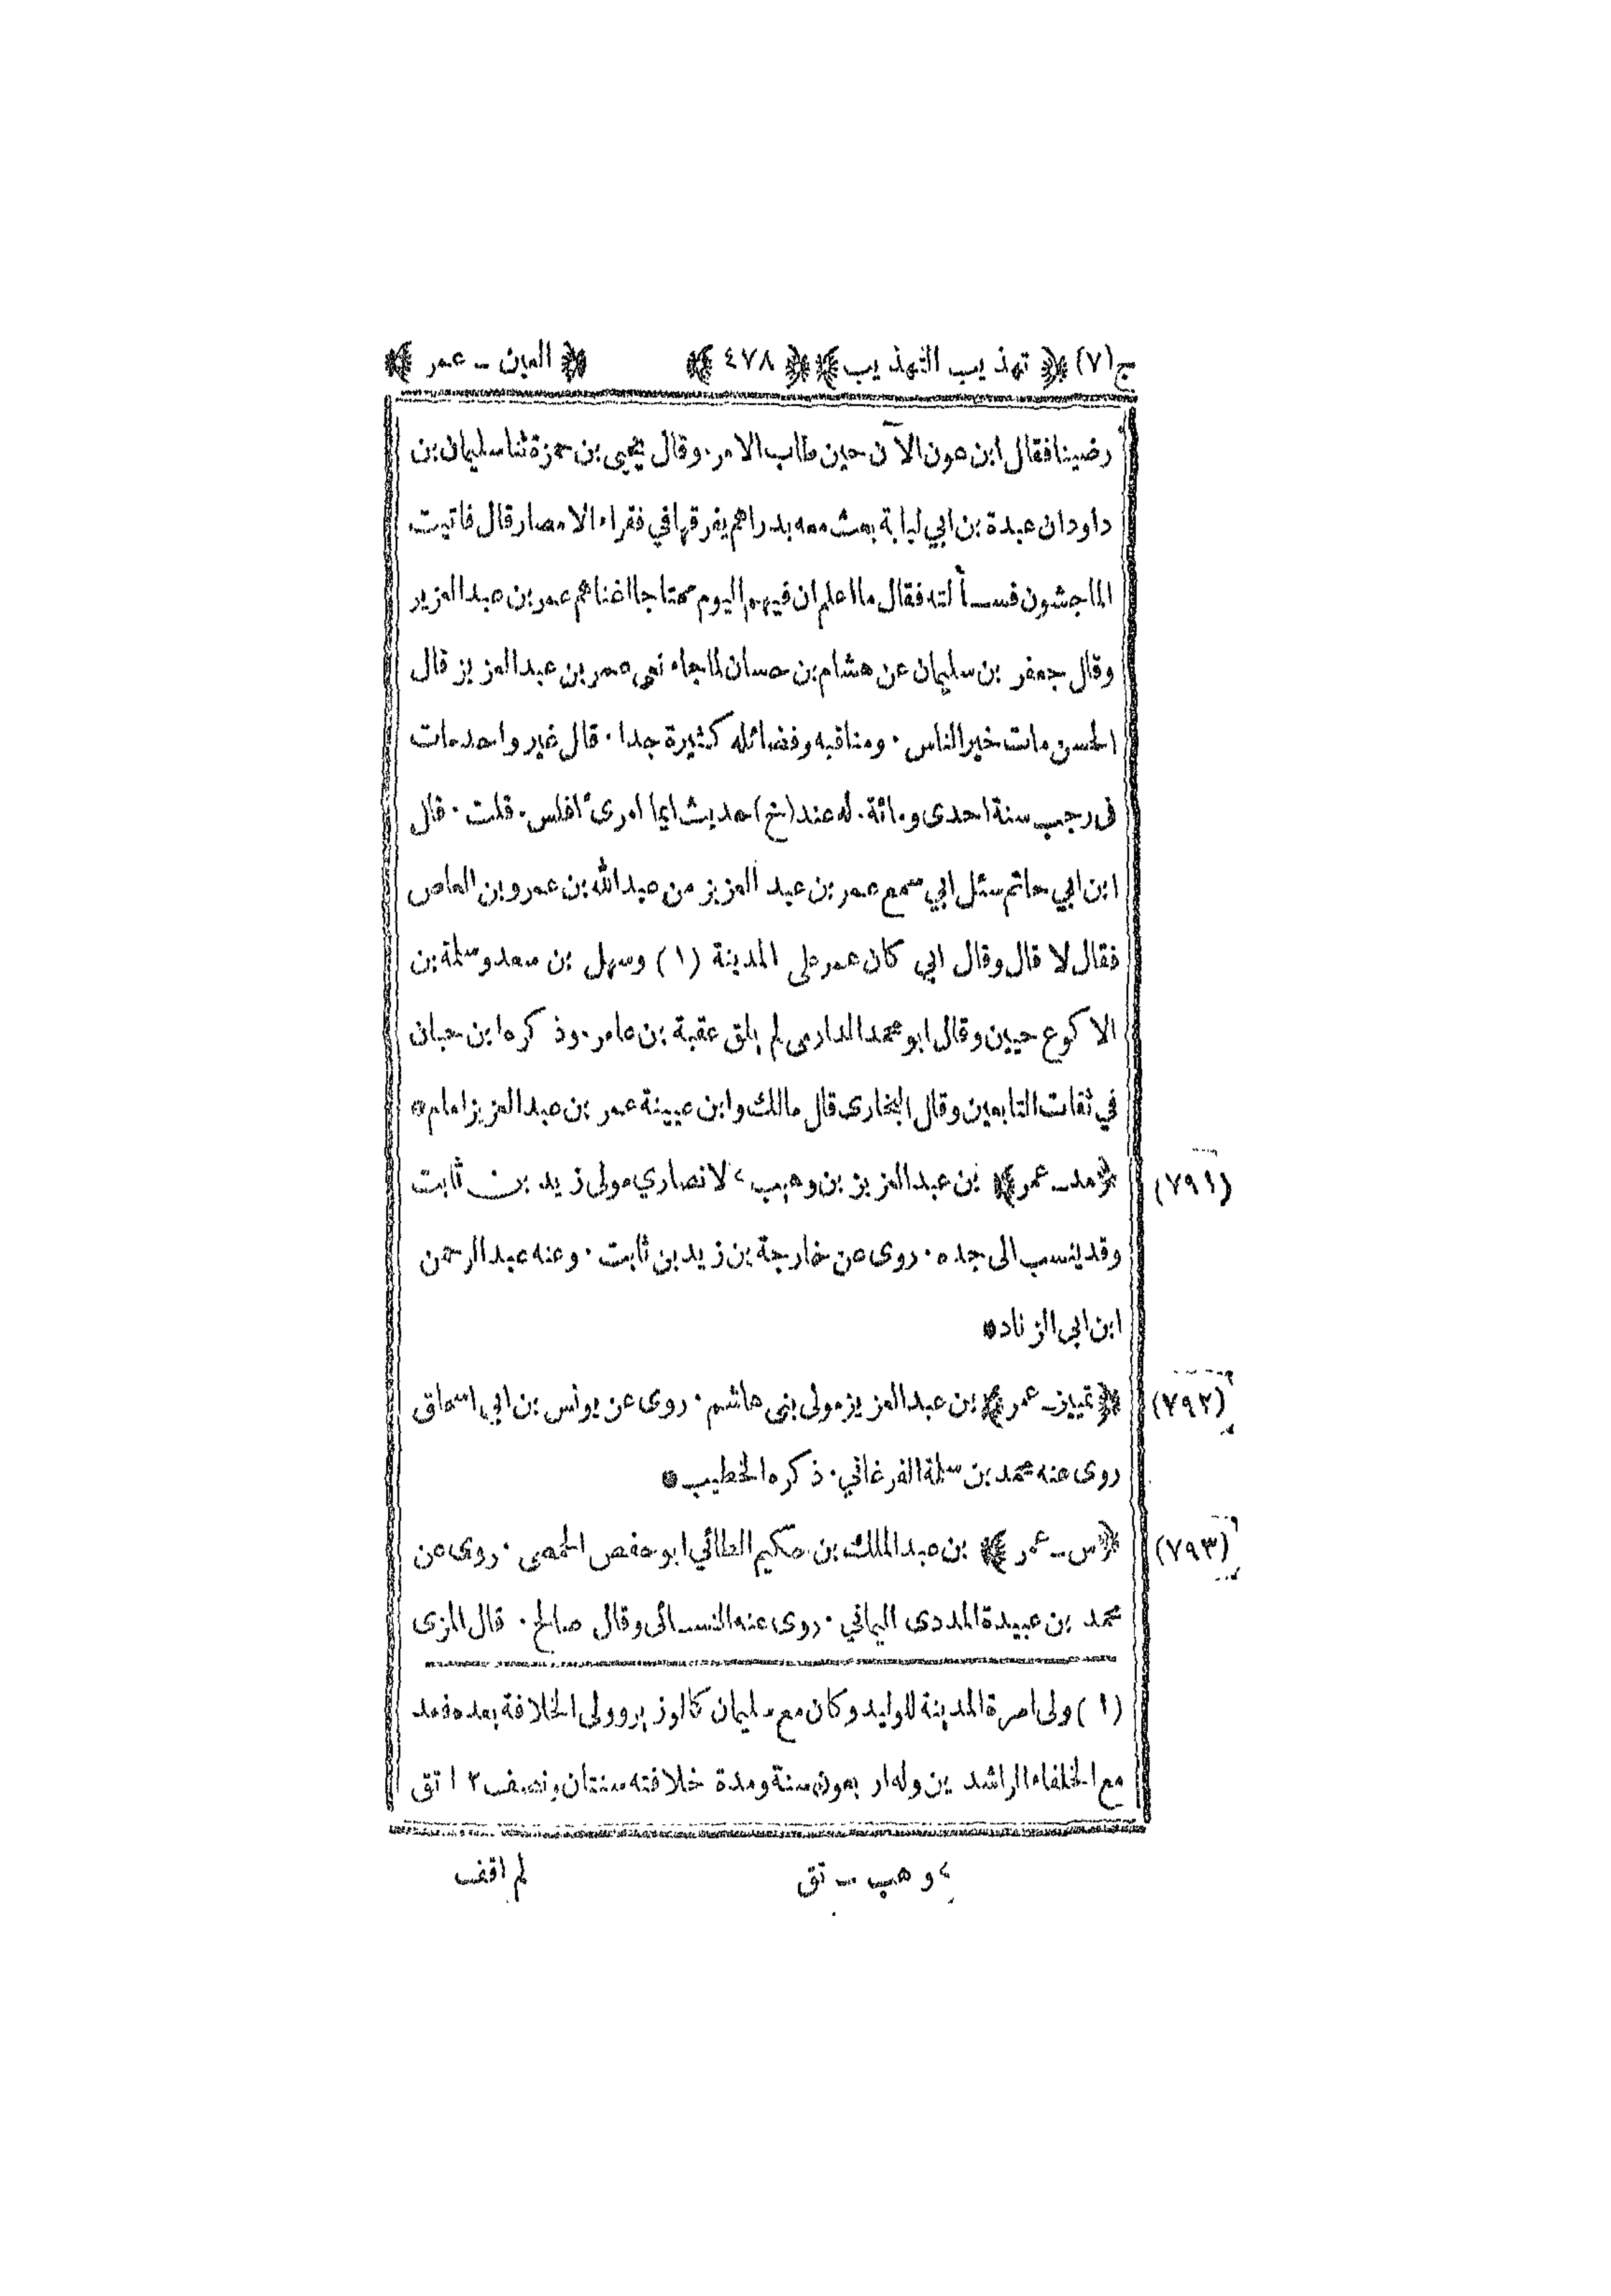 ج(٧) ﴿ تهذيب التهذيب ﴾ ﴿ ٤٧٨ ﴾ ﴿ العين - عمر ﴾
رضينا فقال ابن عون الآن حين طاب الامر. وقال يحيى بن حمزة ثنا سليمان بن
داود ان عبدة بن ابي لبابة بعث معه بدراهم يفرقها في فقراء الامصار قال فاتيت
الماجشون فسألته فقال ما اعلم ان فيهم اليوم محتاجا اغناهم عمر بن عبد العزيز
وقال جعفر بن سليمان عن هشام بن حسان لما جاء نعي عمر بن عبد العزيز قال
الحسن مات خير الناس. ومناقبه وفضائله كثيرة جدا. قال غير واحد مات
فى رجب سنة احدى ومائة. له عند (خ) حديث ايما امرئ افلس. قلت. قال
ابن ابي حاتم سئل ابي سمع عمر بن عبد العزيز من عبد الله بن عمرو بن العاص
فقال لا قال وقال ابي كان عمر على المدينة (١) وسهل بن سعد وسلمة بن
الاكوع حيين وقال ابو محمد الدارمى لم يلق عقبة بن عامر. وذكره ابن حبان
في ثقات التابعين وقال البخارى قال مالك وابن عيينة عمر بن عبد العزيز امام*
(٧٩١) ﴿مد - عمر﴾ بن عبد العزيز بن وهيب ٤ لانصاري مولى زيد بن ثابت
وقد ينسب الى جده. روى عن خارجة بن زيد بن ثابت. وعنه عبد الرحمن
ابن ابى الزناد*
(٧٩٢) ﴿تمييز - عمر﴾ بن عبد العزيز مولى بنى هاشم. روى عن يونس بن ابي اسحاق
روى عنه محمد بن سلمة الفرغاني. ذكره الخطيب*
(٧٩٣) ﴿س - عمر﴾ بن عبد الملك بن حكيم الطائي ابو حفص الحمصى. روى عن
محمد بن عبيدة المددى اليماني. روى عنه النسائى وقال صالح. قال المزى
(١) ولى امرة المدينة للوليد وكان مع سليمان كالوزير وولى الخلافة بعده فعد
مع الخلفاء الراشدين وله اربعون سنة ومدة خلافته سنتان ونصف ١٢ تق
٤ وهب - تق لم اقف